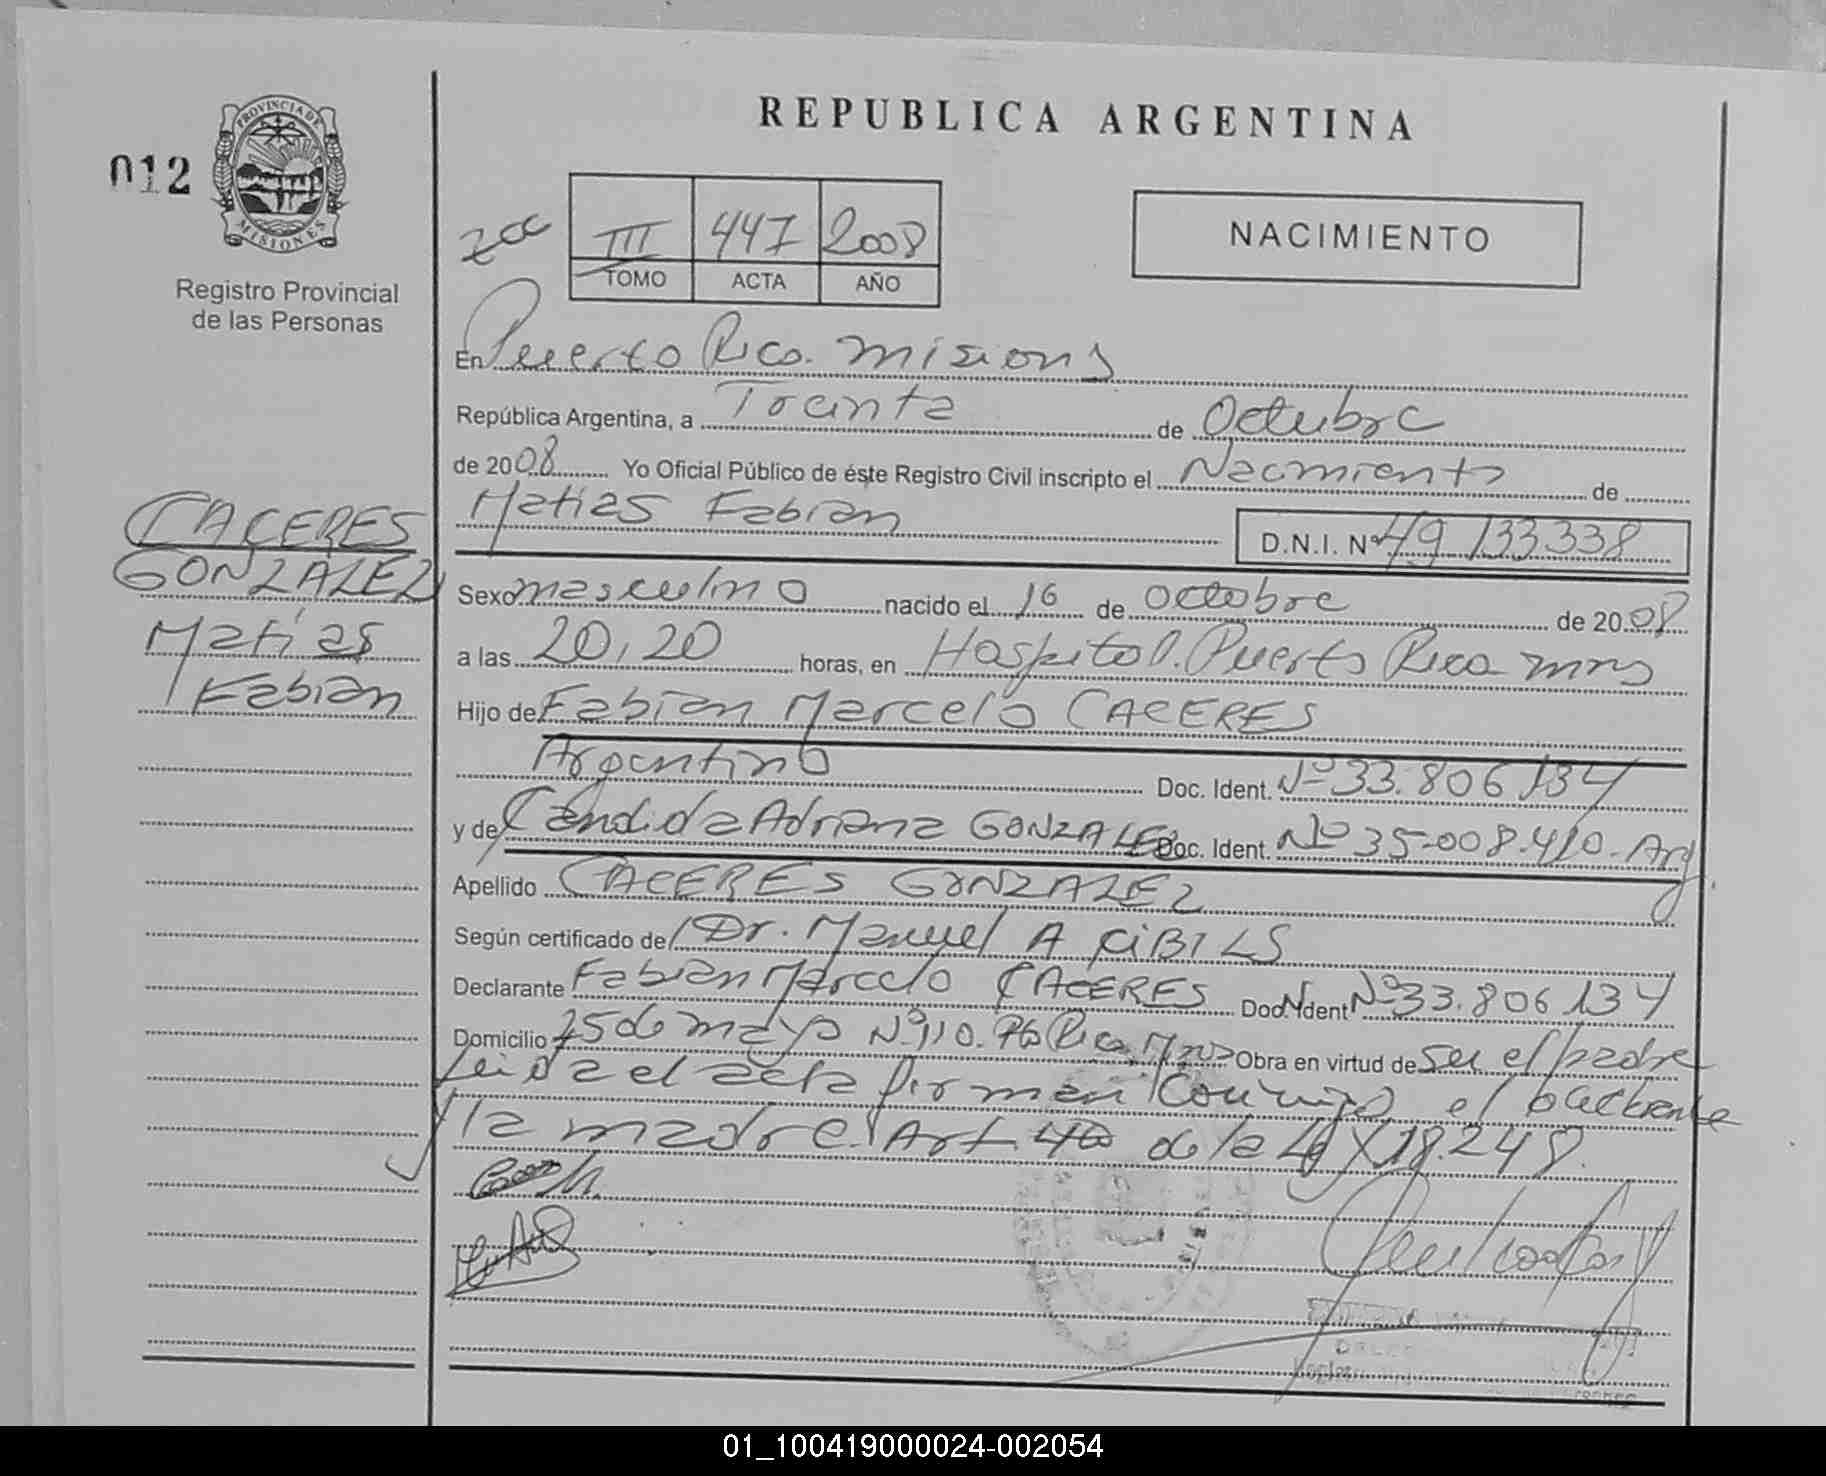 REPUBLICA ARGENTINA
012
PROVINCIA DE
MISIONES
Registro Provincial
de las Personas
III 447 2008
TOMO ACTA AÑO
NACIMIENTO
En Puerto Rico. Misiones
República Argentina, a Treinta de Octubre
de 2008 Yo Oficial Público de éste Registro Civil inscripto el Nacimiento de
Matias Fabian D.N.I. Nº 49 133338
CACERES
GONZALEZ
Matias
Fabian
Sexo masculino nacido el 16 de octubre de 2008
a las 20,20 horas, en Hospital. Puerto Rico mns
Hijo de Fabian Marcelo CACERES
Argentino Doc. Ident. Nº 33.806 134
y de Candida Adriana GONZALEZ Doc. Ident. Nº 35.008.410. Arg.
Apellido CACERES GONZALEZ
Según certificado de Dr. Manuel A CIBILS
Declarante Fabian Marcelo CACERES Doc. Ident Nº 33.806 134
Domicilio 25 de mayo Nº 110. Pto Rico, Mns Obra en virtud de ser el padre
Leida el acta firman conmigo el
y la madre. Art. 4º de la Ley 18.248.
01_100419000024-002054